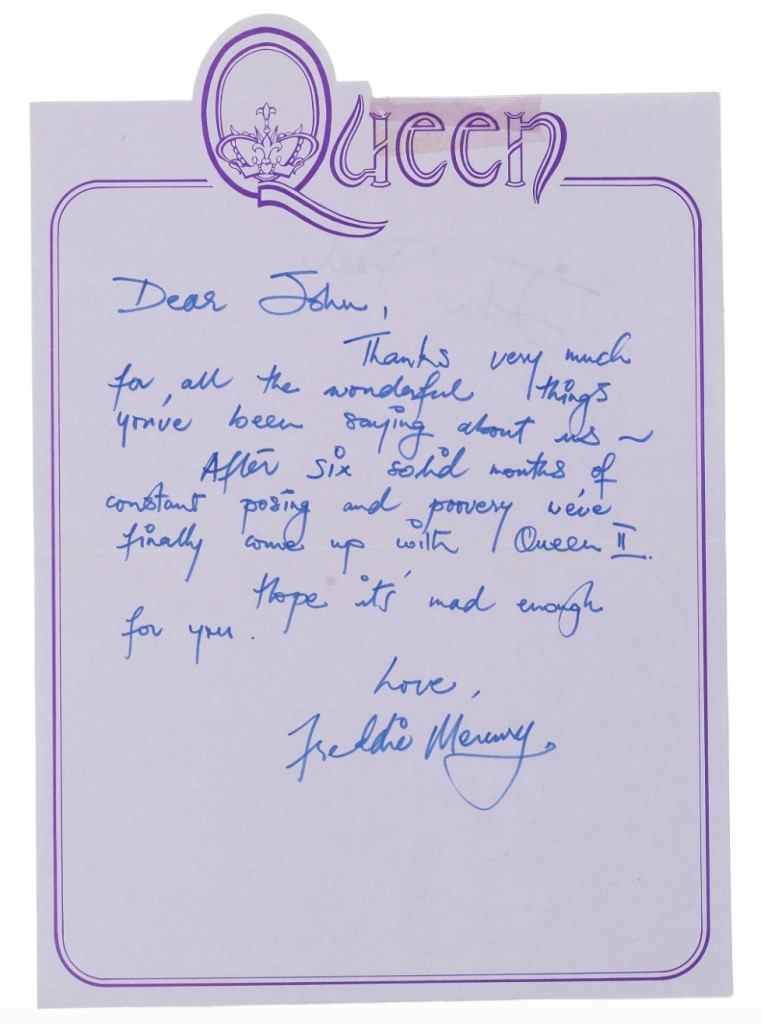 Queen
Dear John,
Thanks very much
for, all the wonderful things
you've been saying about us ~
After six solid months of
constant posing and poovery we've
finally come up with Queen II.
Hope it's mad enough
for you.
Love,
Freddie Mercury.